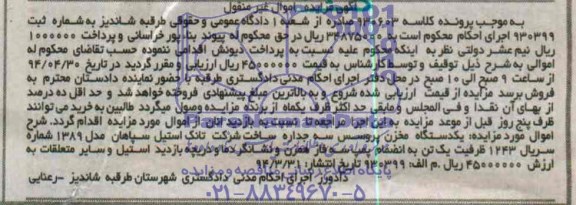 آگهی مزایده اموال غیر منقول
به موجب پرونده کلاسه 930603 صادره از شعبه 1 دادگاه عمومی و حقوقی طرقبه شاندیز به شماره ثبت
930399 اجرای احکام محکوم است به 3487500 ریال در حق محکوم له پیوند بناپور خراسانی و پرداخت 1000000
ریال نیم عشر دولتی نظر به اینکه محکوم علیه نسبت به پرداخت دیونش اقدامی ننموده حسب تقاضای محکوم له
اموالی به شرح ذیل توقیف و توسط کارشناس به قیمت 45000000 ریال ارزیابی و مقرر گردید در تاریخ 94/04/30
از ساعت 9 صبح الی 10 صبح در محل دفتر اجرای احکام مدنی دادگستری طرقبه با حضور نماینده دادستان محترم به
فروش برسد مزایده از قیمت ارزیابی شده شروع و به بالاترین مبلغ پیشنهادی فروخته خواهد شد و حد اقل ده درصد
از بهای آن نقدا و فی المجلس و مابقی حد اکثر ظرف یکماه از برنده مزایده وصول میگردد طالبین به خرید می توانند
ظرف پنج روز قبل از موعد مزایده به این اجرا مراجعه تا نسبت به بازدید از اموال مورد مزایده اقدام گردد. شرح
اموال مورد مزایده: یکدستگاه مخزن پروسس سه جداره ساخت شرکت تانک استیل سپاهان مدل 1389 شماره
سریال 1243 ظرفیت یک تن به انضمام پمپ سه فاز همزن و خشک گرد و دریچه بازدید استیل و سایر متعلقات به
ارزش 45000000 ریال .م الف: 930399 تاریخ انتشار: 94/3/31
دادورز اجرای احکام مدنی دادگستری شهرستان طرقبه شاندیز -رعنایی
پایگاه اطلاع رسانی مناقصه و مزایده
۰۲۱-۸۸۳۴۹۶۷۰-۵